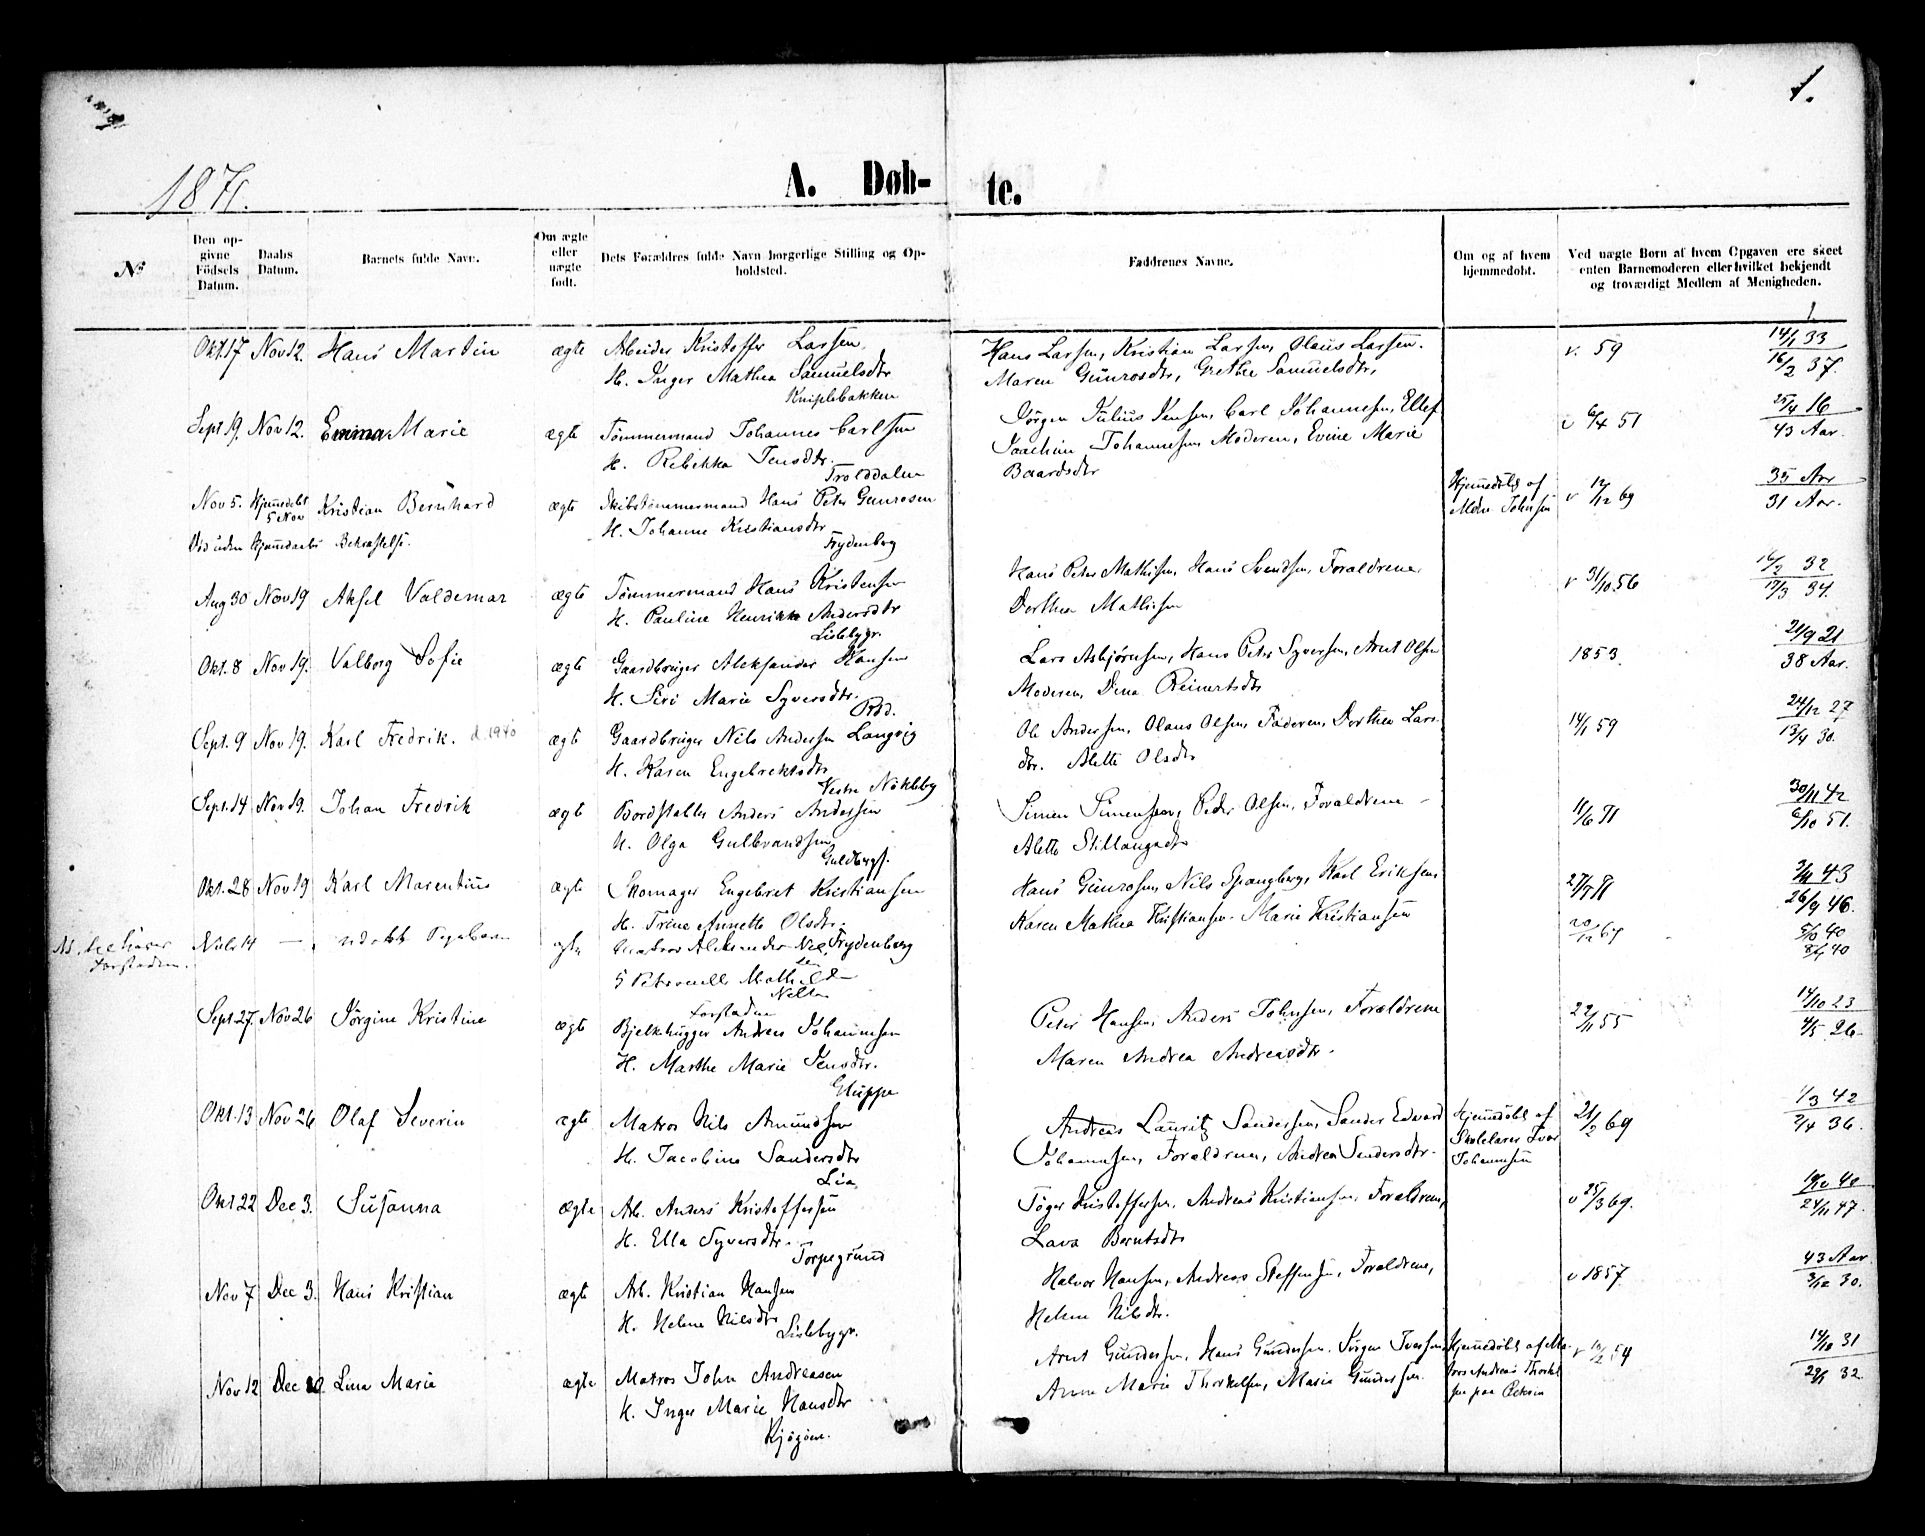 1.
1871.
A. Døb- te.
№
Den op-
givne
Födsels
Datum.
Daabs
Datum.
Barnets fulde Navn.
Om ægte
eller
uægte
født.
Dets Forældres fulde Navn borgerlige Stilling og Op-
holdsted.
Faddrenes Navne.
Om og af hvem
hjemmedøbt.
Ved uægte Børn af hvem Opgaven ere skeet
enten Barnemoderen eller hvilket bekjendt
og troværdigt Medlem af Menigheden.
Okt.17 Nov 12. Hans Martin ægte Arbeider Kristoffer Larsen Hans Larsen, Kristian Larsen, Olaus Larsen. v. 59 14/1 33
H. Inger Mathea Samuelsdtr Maren Gunrosdtr, Grethe Samuelsdtr, 16/2 37.
Kniplebakken
Sept 19. Nov 12. Emma Marie ægte Tömmermand Johannes Carlsen Jørgen Julius Jensen, Carl Johannesen, Ellef v 6/4 51 25/4 16
H. Rebekka Jensdtr. Joachim Johannesen, Moderen, Evine Marie 43 Aar.
Trolddalen Baardsdtr
Nov 5. Hjemmedøbt 5 Nov Kristian Bernhard ægte Skibstömmermand Hans Peter Gunrosen Hjemmedøbt af v 12/12 69 35 Aar
H. Johanne Kristiansdtr Johnsen 31 Aar.
Död uden Hjemmedaabs Bekræftelse. Frydenberg
Aug 30 Nov 19 Aksel Valdemar ægte Tömmermand Hans Kristensen Hans Peter Mathisen, Hans Svendsen, Forældrene, v 31/10.56 16/2 32
H. Pauline Henrikke Andersdtr Dorthea Mathisen 17/3 34.
Lislebygr.
Okt. 8 Nov 19. Valborg Sofie ægte Gaardbruger Aleksander Hansen Lars Asbjørnsen, Hans Peter Syversen, Arnt Olsen 1853. 21/9 21
H. Siri Marie Syversdtr. Moderen, Dina Reinertsdtr 38 Aar.
Röd.
Sept. 9 Nov 19. Karl Fredrik. d. 1940 ægte Gaardbruger Nils Andersen Langvig Ole Andersen, Olaus Olsen, Faderen, Dorthea Lars- 14/1 59 24/12 27
H. Karen Engebrektsdtr dtr. Alette Olsdtr 13/4 30.
Vestre Nökleby
Sept. 14 Nov 19. Johan Fredrik ægte Bordstabler Anders Andersen Simen Simensen, Peder Olsen, Forældrene 11/6 71 30/11 42
H. Olga Gulbrandsen Alette Stillaugsdtr 6/10 51.
Guldbergs.
Okt. 28 Nov 19 Karl Marentius ægte Skomager Engebret Kristiansen Hans Gunrosen, Nils Spangberg, Karl Eriksen, 27/7 71 3/11 43
H. Trine Annette Olsdtr. Karen Mathea Kristiansen. Marie Kristiansen 26/9 46.
Forstaden. Nov 14 — udøbt Pigebarn ægte Matros Aleksander Nilsen Frydenberg 20/12 67 5/10 40
Petronelle Mathilde 8/4 40
Forstaden
Sept. 27. Nov 26 Jörgine Kristine ægte Bjelkehugger Andreas Johannesen Peter Hansen, Anders Johnsen, Forældrene 22/11 55 14/10 23
H. Marthe Marie Jensdtr. Maren Andrea Andreasdtr. 4/5 26.
Gluppe
Okt. 13 Nov 26 Olaf Severin ægte Matros Nils Amundsen Andreas Lauritz Sandersen, Sander Edvard Hjemmedøbt af 21/2 69 1/3 42
H. Jacobine Sandersdtr Johannesen, Forældrene, Andrea Sandersdtr. Skolelærer Ivar 2/4 36.
Lia Johannesen
Okt 22 Dec 3. Susanna ægte Arb. Anders Kristoffersen Töger Kristoffersen, Andreas Kristiansen, Forældrene, v 25/3 69. 10/10 40
H. Ella Syversdtr. Lava Berntsdtr 24/11 47.
Torpegrund
Nov 7 Dec 3. Hans Kristian ægte Arb. Kristian Hansen Halvor Hansen, Andreas Steffensen, Forældrene, v 1857. 43 Aar
H. Helene Nilsdtr Helene Nilsdtr. 3/12 30.
Lislebygr.
Nov 12 Dec 10. Lina Marie ægte Matros John Andreasen Arnt Gundersen, Hans Gundersen, Jörgen Iversen, Hjemmedøbt af Ma- v 10/2 54 14/10 31
H. Inger Marie Hansdtr Anne Marie Thorkelsen, Maria Gundersen. tros Andreas Thorkel- 29/1 32.
Kjøgöen. sen paa